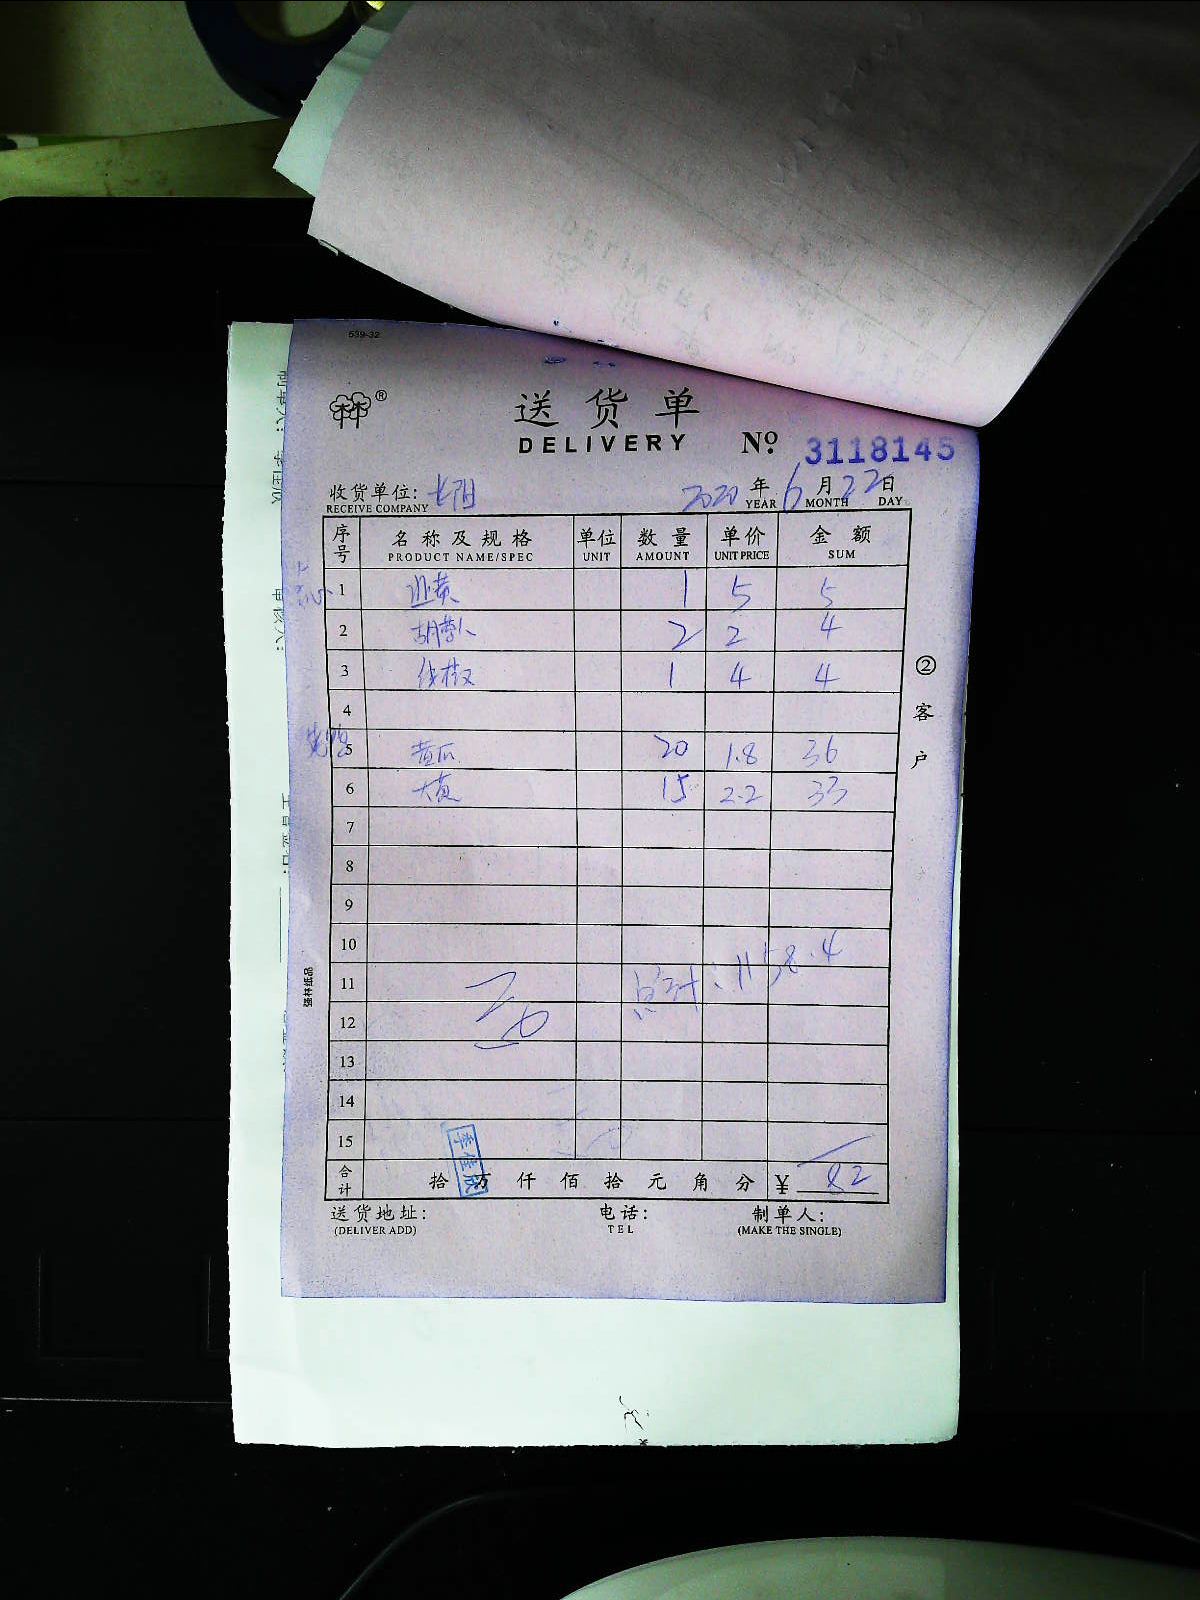 539-32
林林®
送货单
DELIVERY
№ 3118145
收货单位: 长阳 2020 年 6 月 22 日
RECEIVE COMPANY YEAR MONTH DAY
序号 名称及规格 单位 数量 单价 金额
PRODUCT NAME/SPEC UNIT AMOUNT UNIT PRICE SUM
1 韭黄 1 5 5
2 胡萝卜 2 2 4
3 线椒 1 4 4
4
5 黄瓜 20 1.8 36
6 15 2.2 33
7
8
9
10
11 总计: 1158.4
12
13
14
15
合计 拾 万 仟 佰 拾 元 角 分 ¥ 82
李佳欣
送货地址: 电话: 制单人:
(DELIVER ADD) TEL (MAKE THE SINGLE)
②客户
强林纸品
制单人: 李佳欣
审核人: